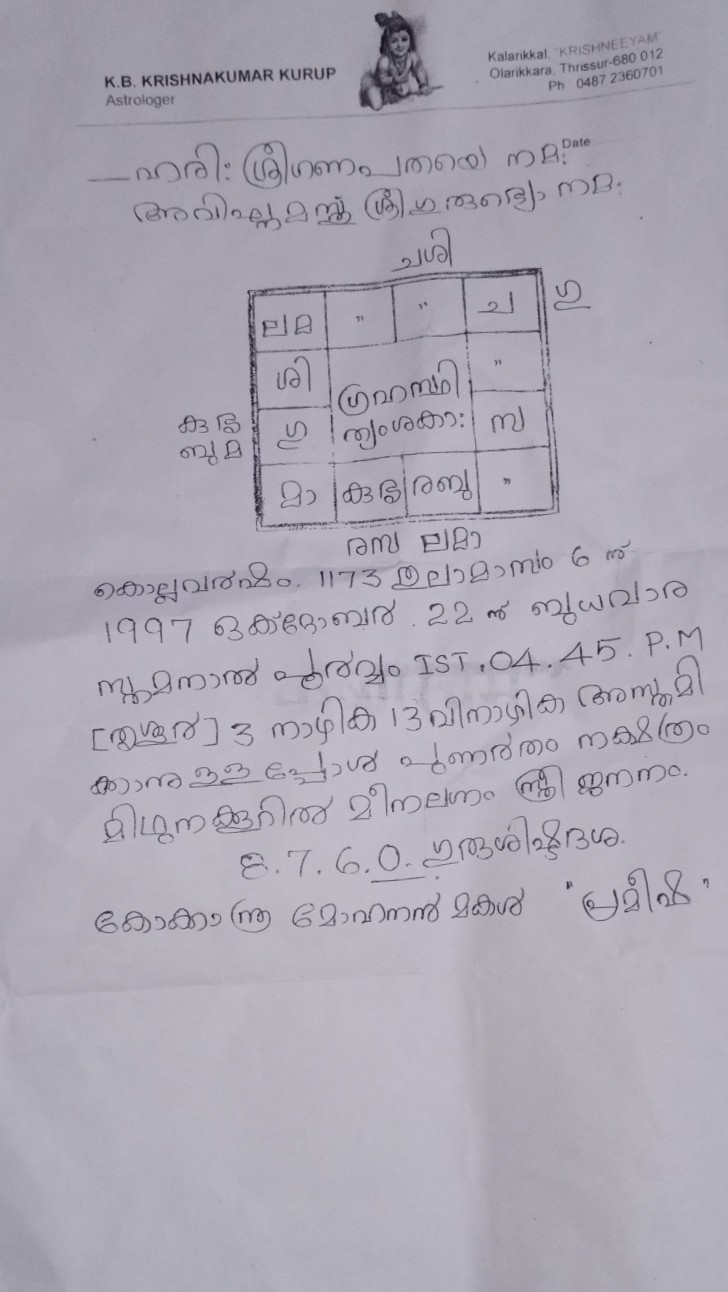 K.B. KRISHNAKUMAR KURUP
Astrologer
Kalarikkal, "KRISHNEEYAM"
Olarikkara, Thrissur-680 012
Ph 0487 2360701
Date
ഹരി: ശ്രീഗണപതയെ നമ:
അവിഘ്നമസ്തു ശ്രീഗുരുഭ്യോ നമ:
ചശി
ലമ " " ച ഗു
ശി ഗ്രഹസ്ഥി "
ത്യംശകാ:
ഗു സ
ബുമ
മാ രബു "
രസ ലമാ
കൊല്ലവർഷം. 1173 തുലാമാസം 6 ന്
1997 ഒക്ടോബർ. 22 ന് ബുധവാര
IST. 04. 45. P.M
[തൃശൂർ] 3 നാഴിക 13 വിനാഴിക അസ്തമി
ക്കാനുള്ളപ്പോൾ പുണർതം നക്ഷത്രം
മിഥുനക്കൂറിൽ മീനലഗ്നം സ്ത്രീ ജനനം.
8. 7. 6. 0. ഗുരുശിഷ്ടദശ.
മോഹനൻ മകൾ "പ്രമീഷ"